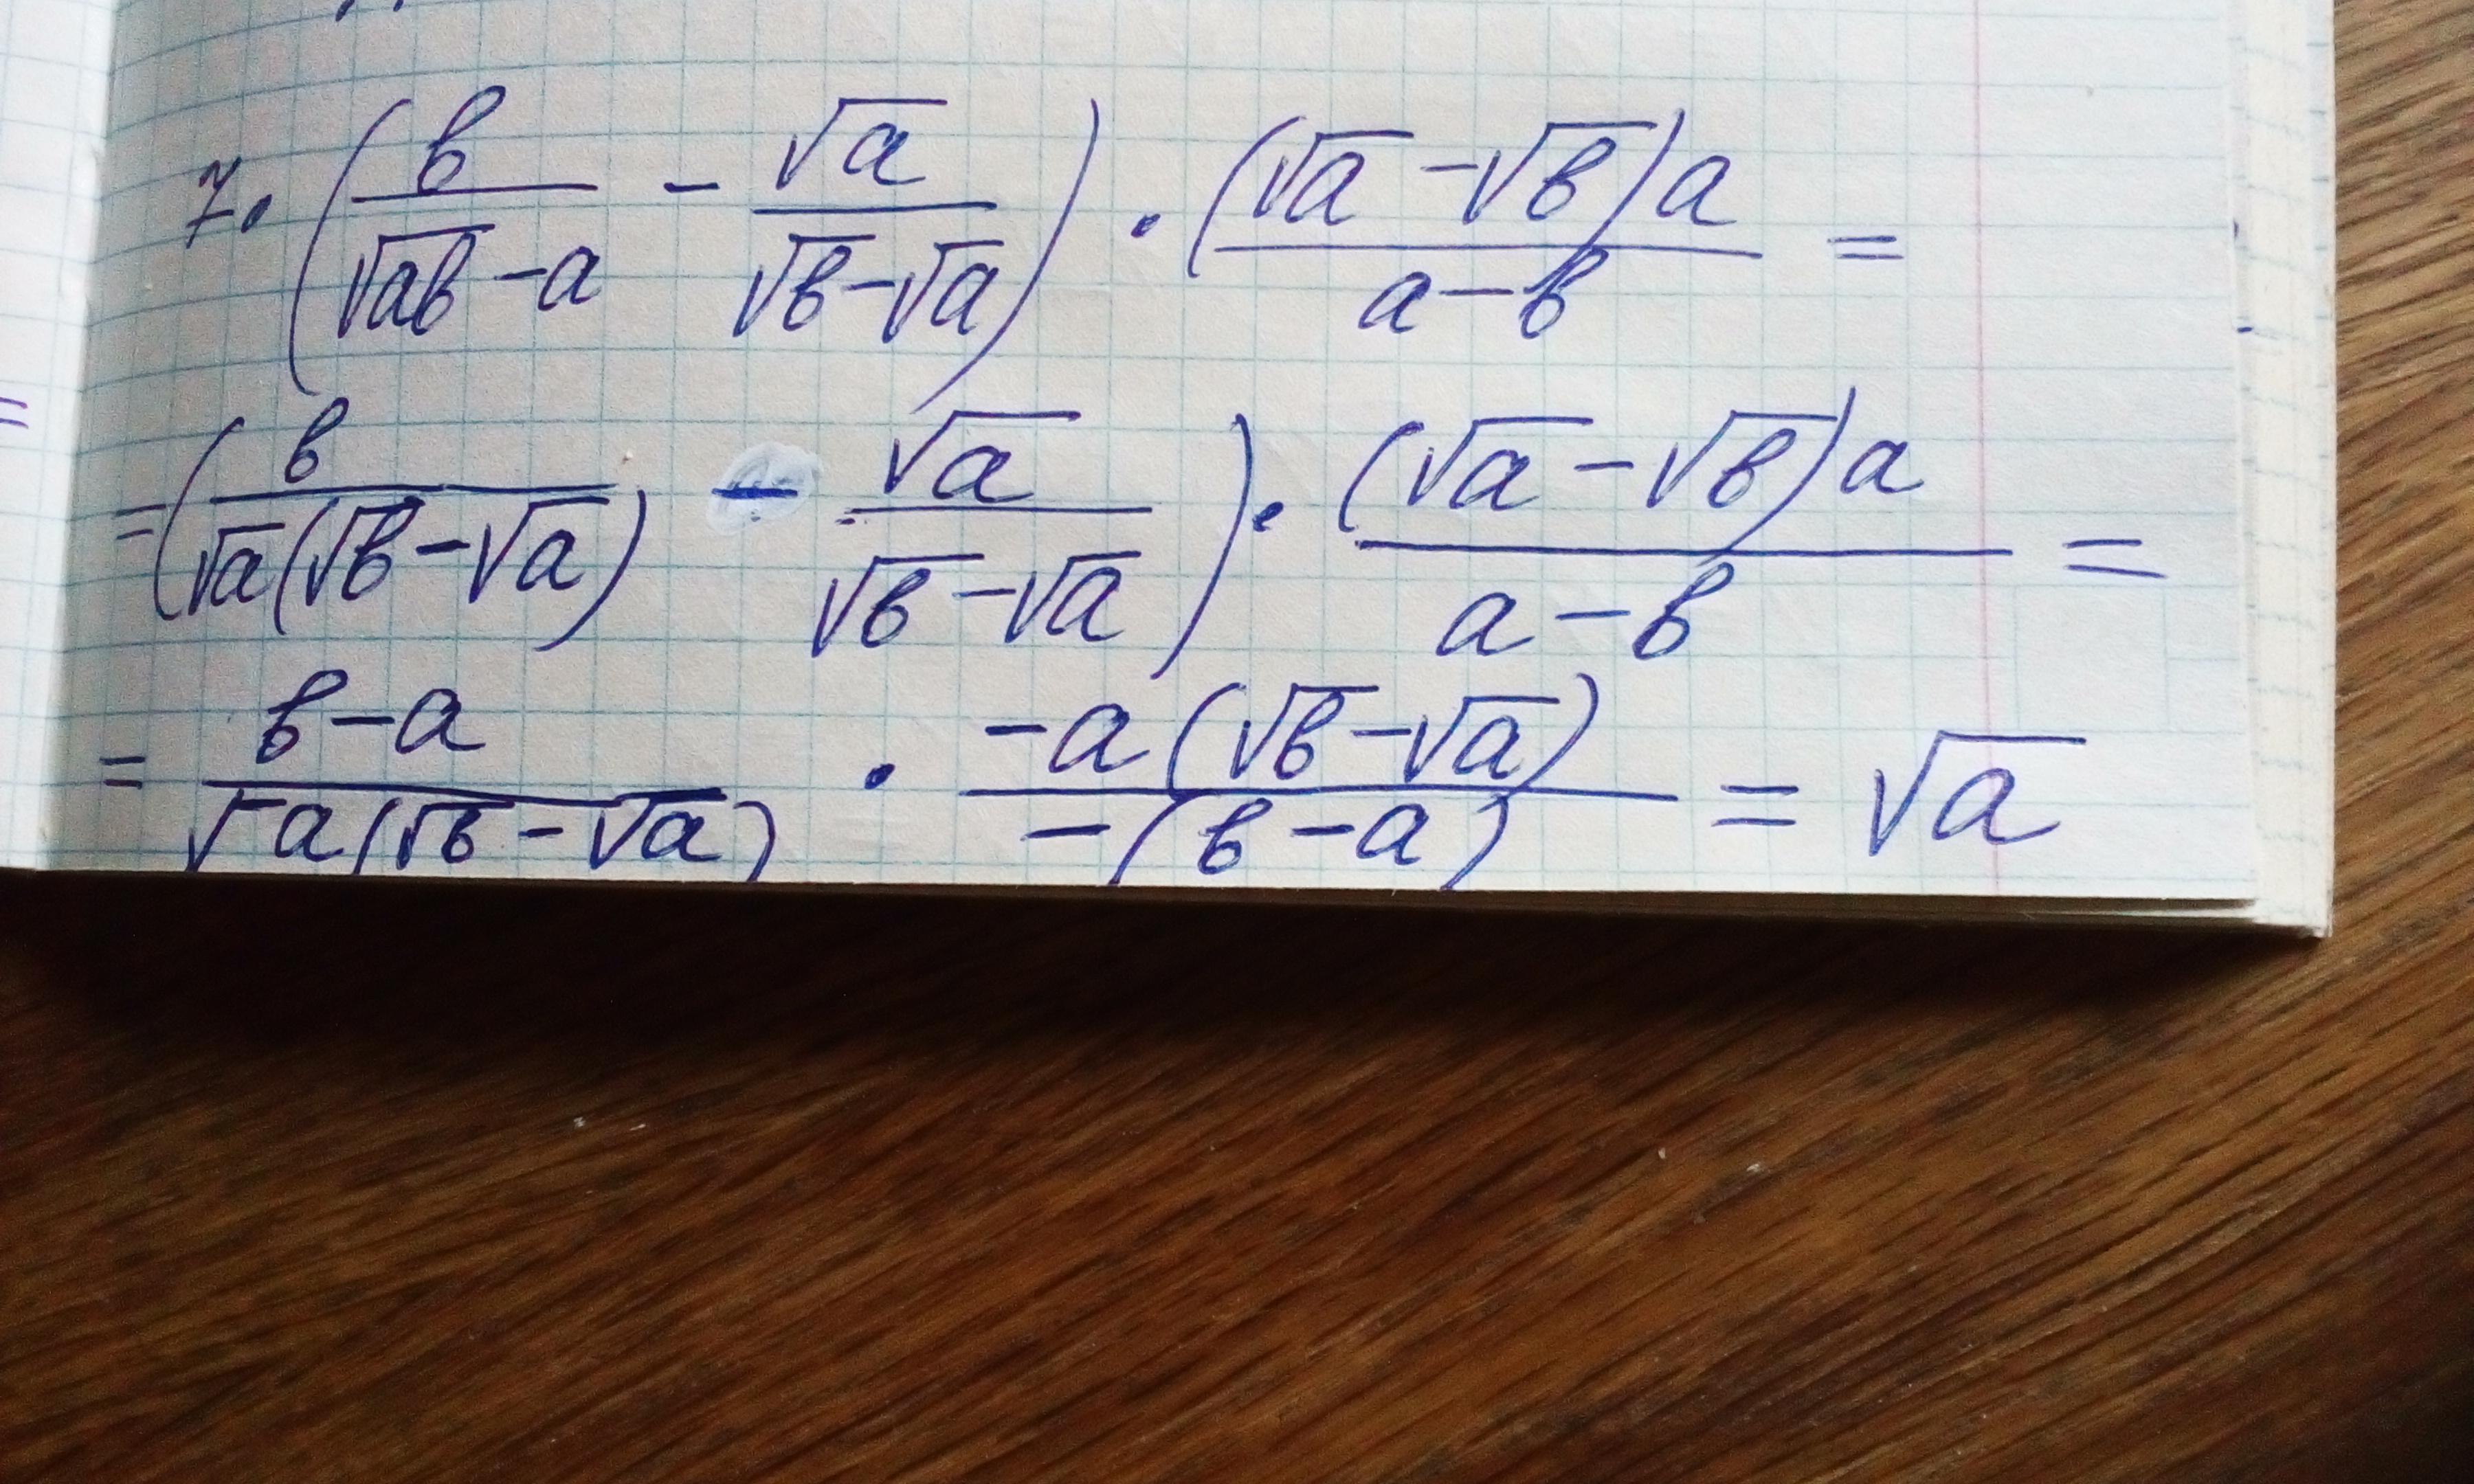 7. (b/(√ab - a) - √a/(√b - √a)) · (√a - √b)a/(a - b) =
= (b/(√a(√b - √a)) - √a/(√b - √a)) · (√a - √b)a/(a - b) =
= (b - a)/(√a(√b - √a)) · -a(√b - √a)/(-(b - a)) = √a